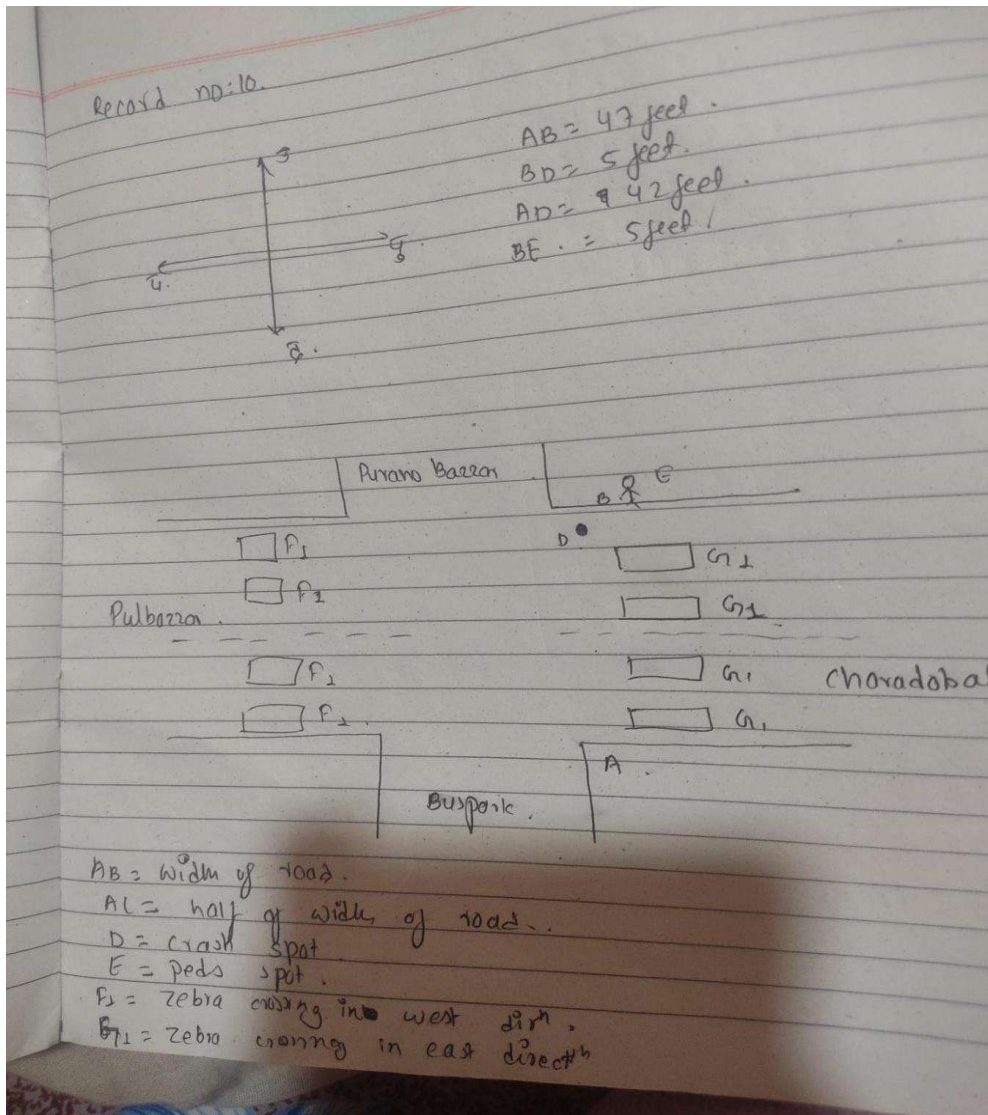 Record no:10.
AB = 47 feet.
BD = 5 feet.
AD = 42 feet.
BE. = 5 feet.
उ
पू.
प.
द.
Purano Bazzar
B E
D
F1 G1
F1 G1
Pulbazzar.
F1 G1 Choradoba
F1. G1
A.
Buspark.
AB = width of road.
AC = half of width of road..
D = crash spot
E = peds spot.
F1 = zebra crossing in west dirn.
G1 = zebra cronng in east directn